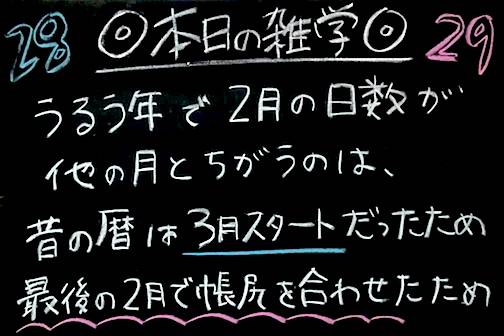 28 ◎本日の雑学◎ 29
うるう年で2月の日数が
他の月とちがうのは、
昔の暦は3月スタートだったため
最後の2月で帳尻を合わせたため